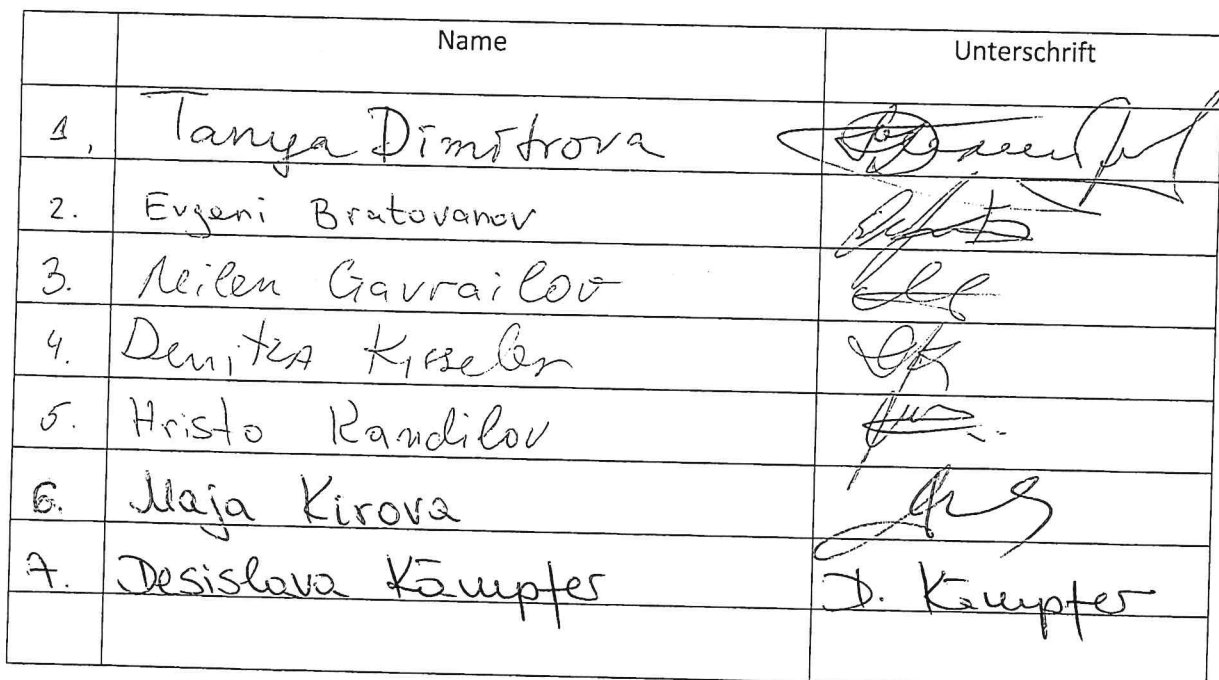 Name Unterschrift
1, Tanya Dimitrova
2. Evgeni Bratovanov
3. Meilen Gavrailov
4. Denitza
5. Hristo Kandilov
6. Maja Kirova
7. Desislava Kämpfer D. Kämpfer